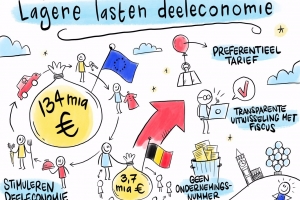 Lagere lasten deeleconomie
PREFERENTIEEL
TARIEF
134 mia
€
TRANSPARANTE
UITWISSELING MET
FISCUS
STIMULEREN
DEELECONOMIE
3,7
mia €
GEEN
ONDERNEMINGS-
NUMMER